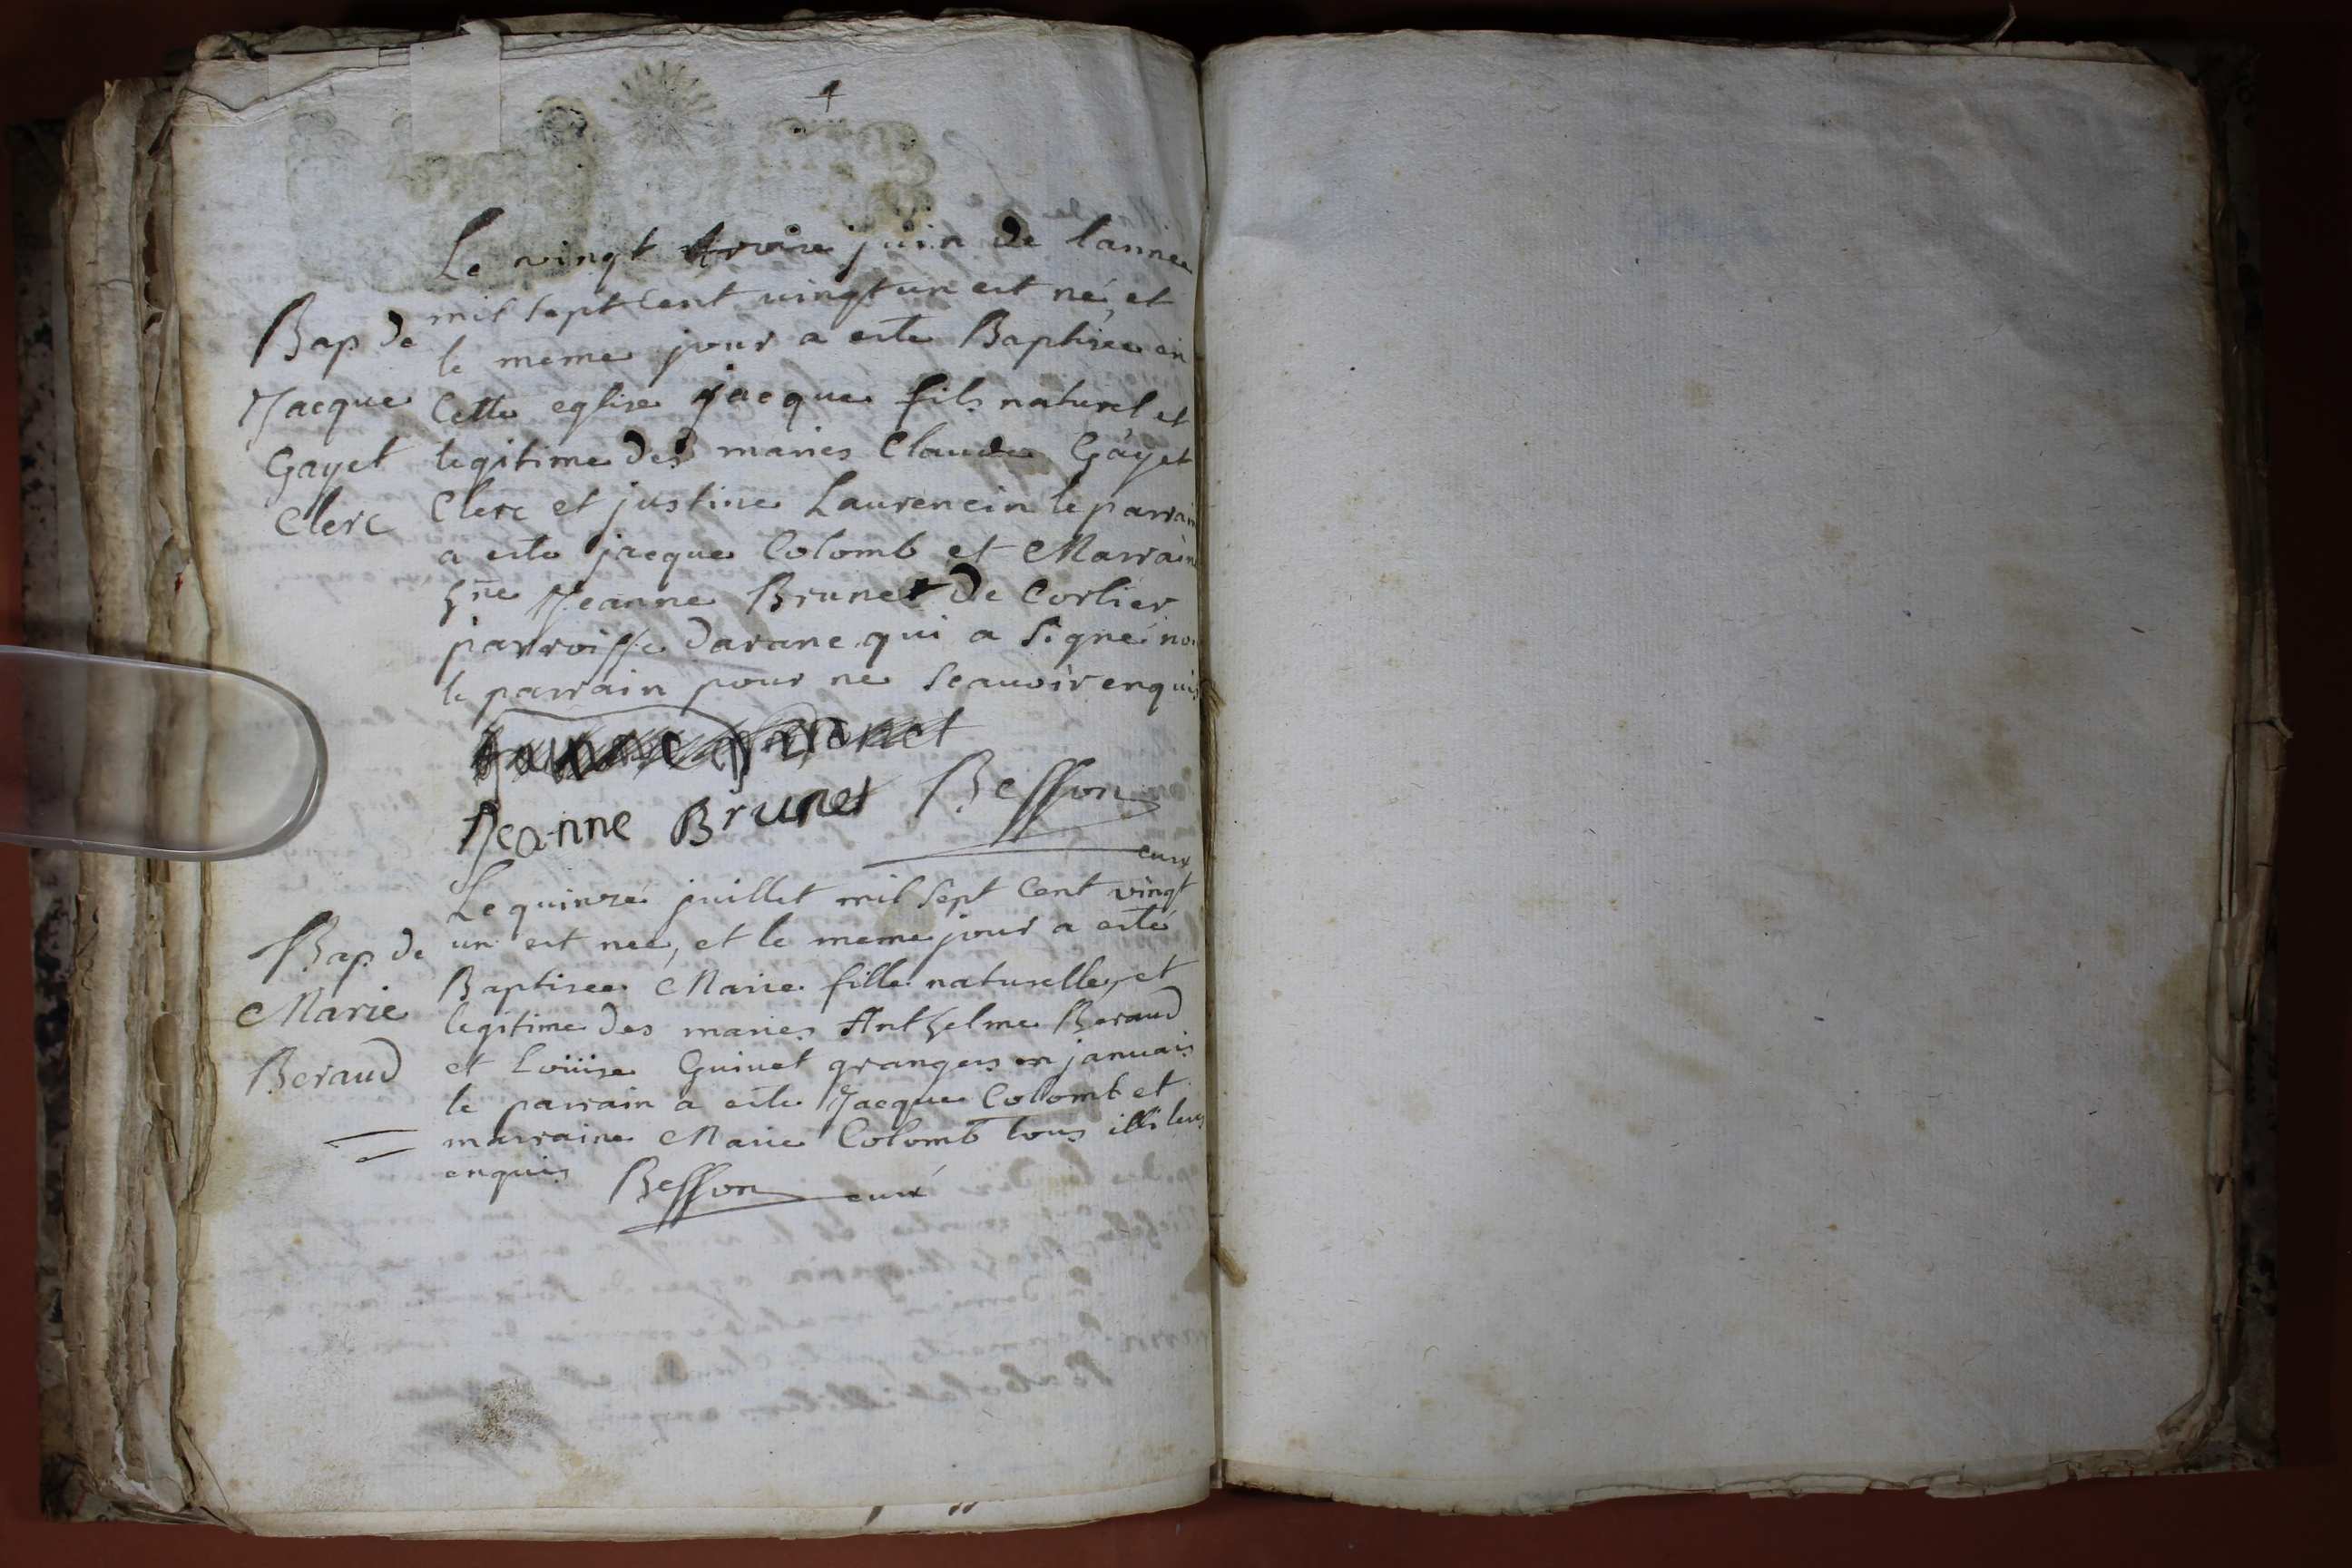 Le vingt troise juin de lannee
mil sept cent vingt un est né, et
le meme jour a este Baptisee en
Cette eglise jacque fils naturel et
legitime des maries Claude Gayet
Clerc et justine Laurencin le parrain
a este jacque Colomb et Marraine
hne Jeanne Brunet de Corlier
parroisse darane qui a signé non
le parrain pour ne scauoir enquis
Jeanne Brunet Besson
curé
Bap de
Jacque
Gayet
Clerc
Le quinzé juillet mil sept Cent vingt
un est nee, et le meme jour a esté
Baptisee Marie fille naturelle, et
legitime des maries Anthelme Beraud
et Loüise Guinet grangers en januais
le parrain a este Jacque Colomb et
marraine Marie Colomb tous illiteres
enquis Besson curé
Bap. de
Marie
Beraud